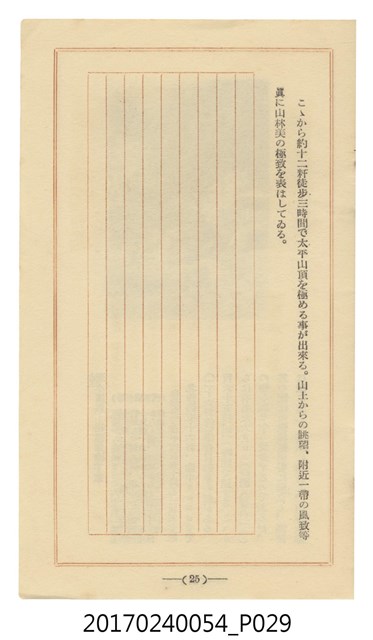 こゝから約十二粁徒歩三時間で太平山頂を極める事が出來る。山上からの眺望、附近一帶の風致等
眞に山林美の極致を表はしてゐる。
(25)
20170240054_P029